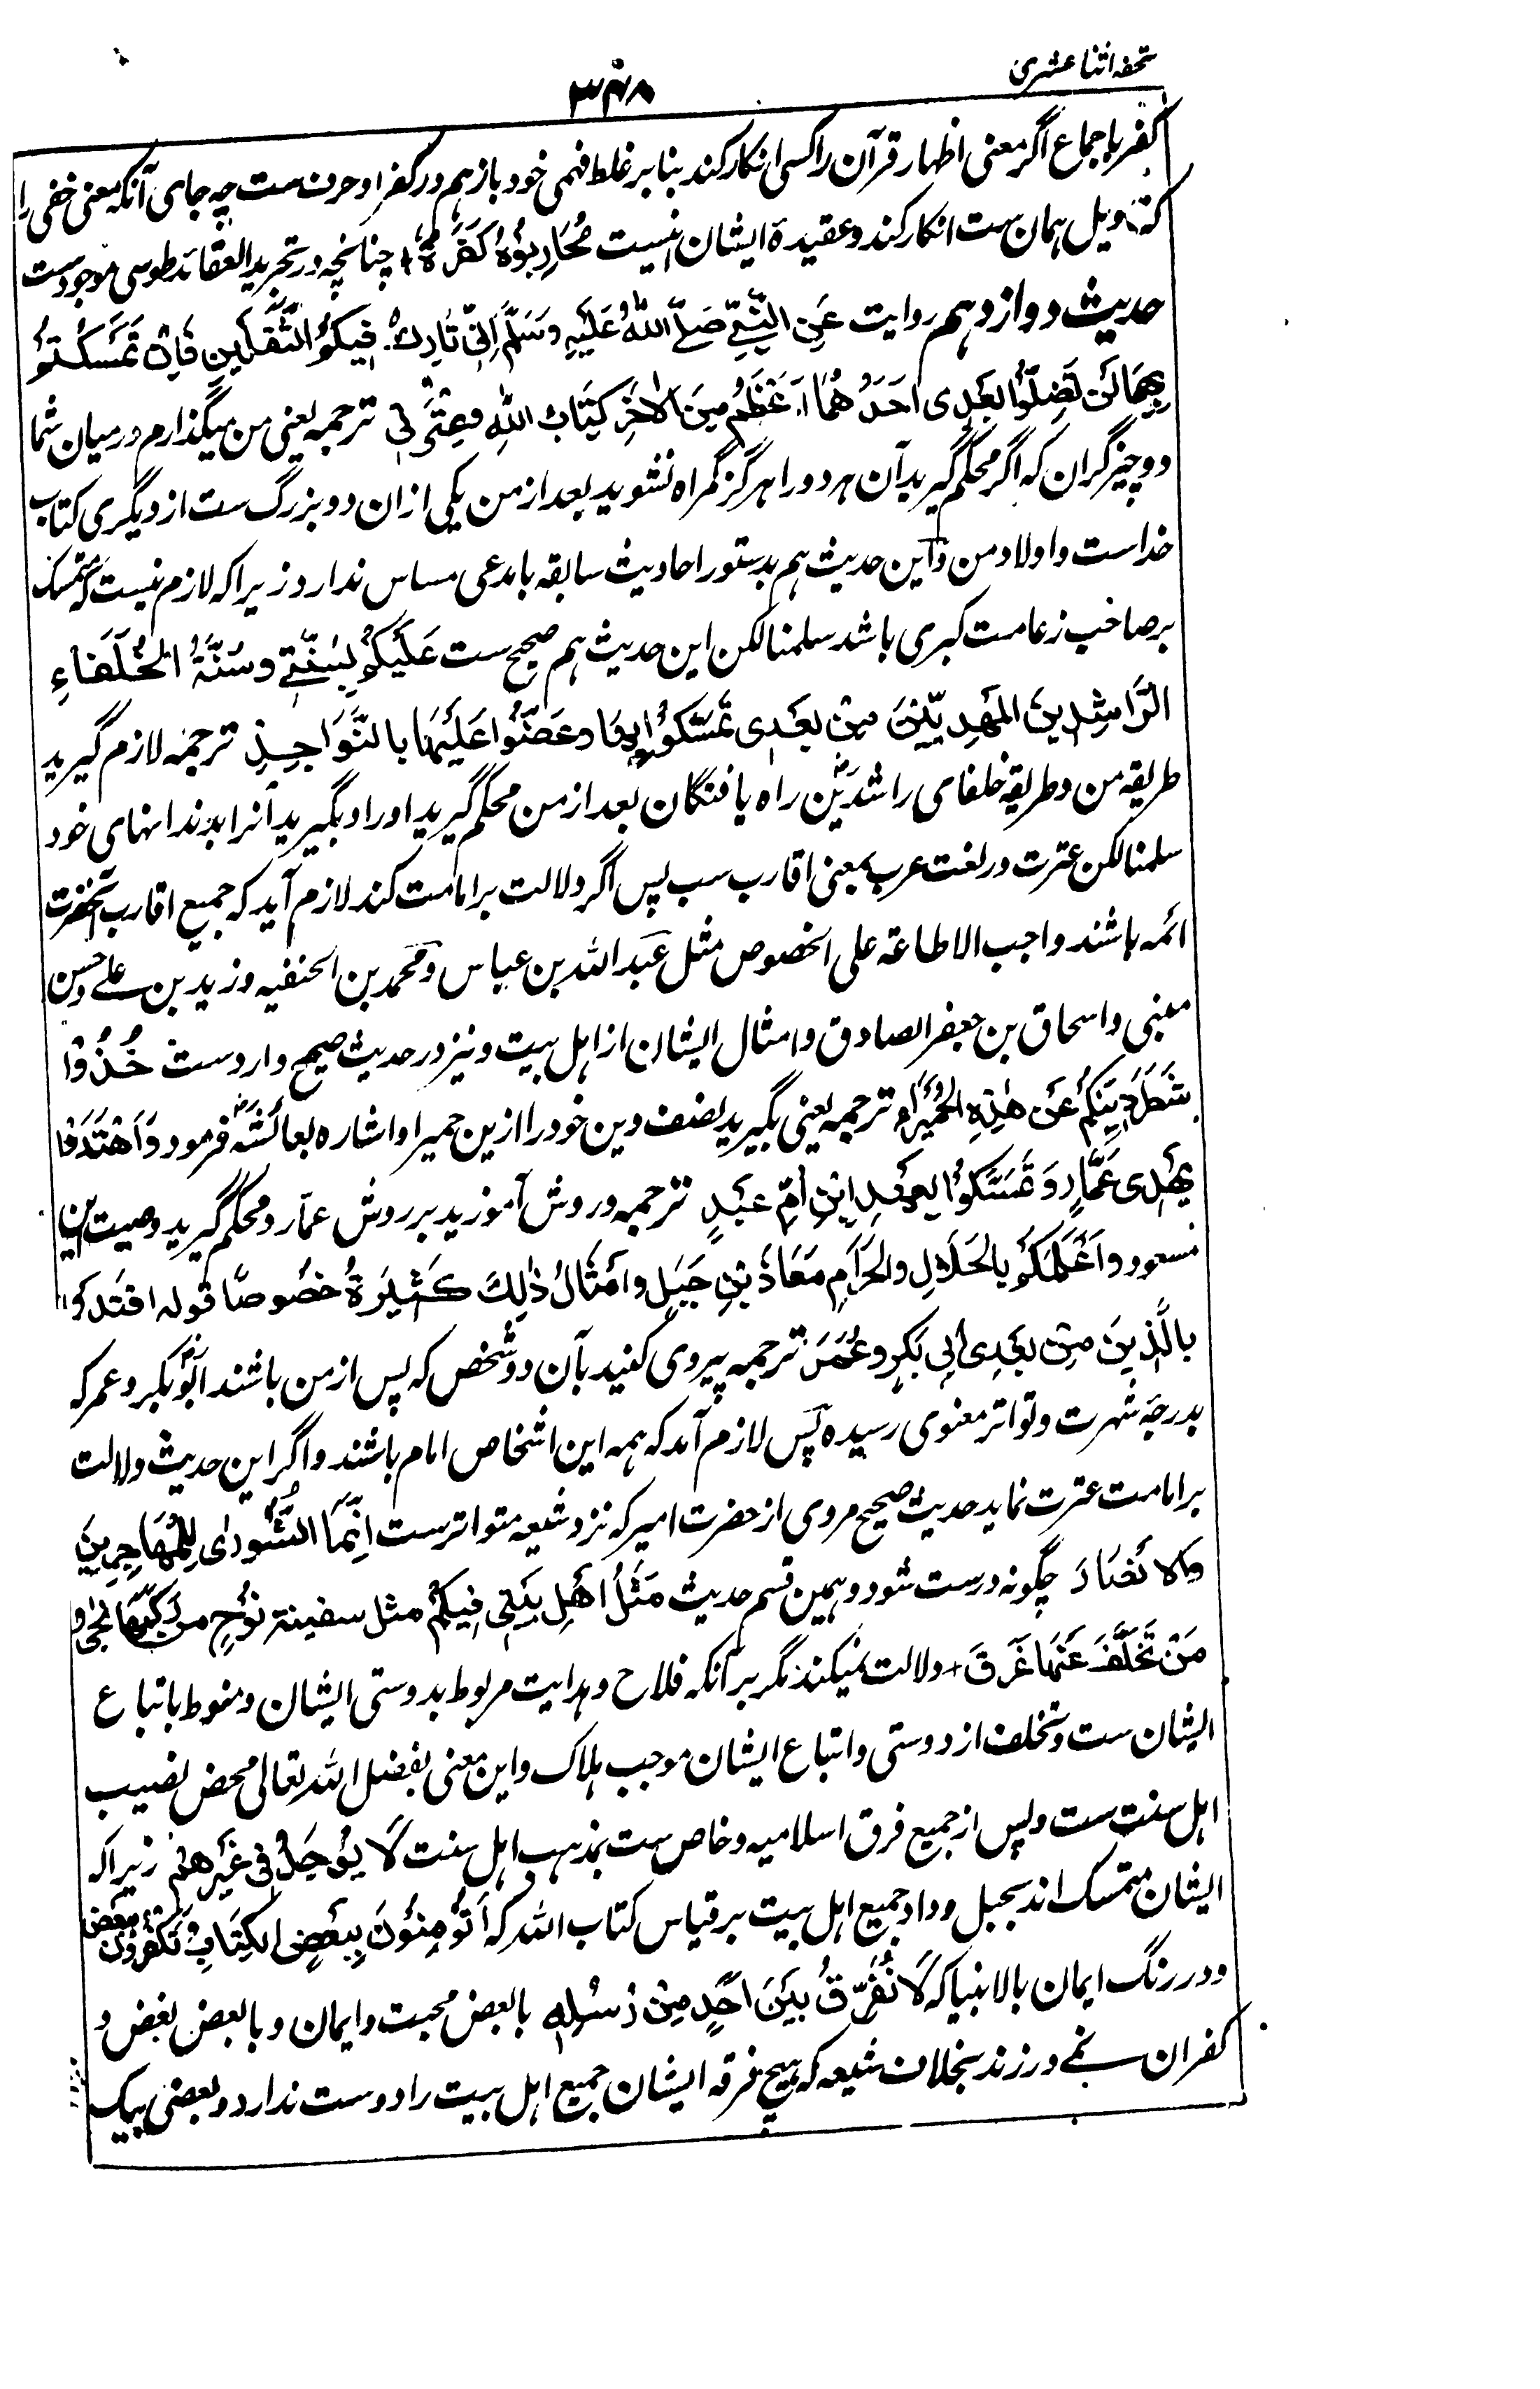 تحفه اثنا عشری
۳۴۸
کفر باجماع اگر معنی اظهار قرآن را کسی انکار کند بنا بر غلط فهمی خود باز هم در کفر او حرف ست چه جای آنکه معنی خفی را
که تاویل همان ست انکار کند و عقیدۀ ایشان اینست مُحَارِبُوْهُ کَفَرَةٌ چنانچه در تجرید العقائد طوسی موجودست
حدیث دوازدهم روایت عَنِ النَّبِیِّ صَلَّی اللهُ عَلَیْهِ وَسَلَّمَ اِنِّیْ تَارِكٌ فِیْکُمُ الثَّقَلَیْنِ فَاِنْ تَمَسَّکْتُمْ
بِهِمَا لَنْ تَضِلُّوْا بَعْدِی اَحَدُهُمَا اَعْظَمُ مِنَ الْاٰخَرِ کِتَابُ اللهِ وَعِتْرَتِیْ ترجمه یعنی من میگذارم درمیان شما
دو چیز گران که اگر محکم گیرید آن هر دو را هرگز گمراه نشوید بعد از من یکی ازان دو بزرگ ست از دیگری کتاب
خداست و اولاد من و این حدیث هم بدستور احادیث سابقه با مدعی مساس ندارد زیرا که لازم نیست که متمسک
بر صاحب زعامت کبری باشد سلمنا لکن این حدیث هم صحیح ست عَلَیْکُمْ بِسُنَّتِیْ وسُنَّةُ الخُلَفَاءِ
الرَّاشِدِینَ المَهْدِیِّیْنَ مِنْ بَعْدِی تَمَسَّکُوْا بِهَا وعَضُّوْا عَلَیْهَا بالنَّوَاجِذِ ترجمه لازم گیرید
طریقه من و طریقه خلفای راشدین راه یافتگان بعد از من محکم گیرید او را و بگیرید آنرا بدندانهای خود
سلمنا لکن عترت در لغت عرب بمعنی اقارب ست پس اگر دلالت بر امامت کند لازم آید که جمیع اقارب آنحضرت
ائمه باشند واجب الاطاعة علی الخصوص مثل عبد الله بن عباس و محمد بن الحنفیه و زید بن علی و حسن
مثنی و اسحاق بن جعفر الصادق و امثال ایشان از اهل بیت و نیز در حدیث صحیح وارد ست خُذُوْا
شَطْرَ دِیْنِکُمْ عَنْ هٰذِهِ الحُمَیْرَاءِ ترجمه یعنی بگیرید نصف دین خود را ازین حمیرا و اشاره بعائشه فرمود وَاهْتَدُوْا
بِهَدْیِ عَمَّارٍ وَ تَمَسَّکُوْا بِعَهْدِ ابْنِ اُمِّ عَبْدٍ ترجمه و روش آموزید بر روش عمار و محکم گیرید وصیت ابن
مسعود و اَعْلَمُکُمْ بِالحَلَالِ والحَرَامِ مَعَاذُ بْنُ جَبَلٍ وامْثَالُ ذٰلِكَ کَثِیْرَةٌ خُصُوصًا قوله اقتَدُوْا
بالَّذَیْنَ مِنْ بَعْدِیْ اَبِی بَکْرٍ وعُمَرَ ترجمه پیروی کنید بآن دو شخص که پس از من باشند ابو بکر و عمر که
بدرجۀ شهرت و تواتر معنوی رسیده پس لازم آمد که همه این اشخاص امام باشند و اگر این حدیث دلالت
بر امامت عترت نماید حدیث صحیح مروی از حضرت امیر که نزد شیعه متواترست اِنَّمَا الشُّوْرٰی لِلْمُهَاجِرِیْنَ
والاَنْصَارَ چگونه درست شود و همین قسم حدیث مَثَلُ اَهْلِ بَیْتِی فِیکُمْ مثل سفینة نُوْحٍ مَنْ رَکِبَهَا نَجٰی وَ
مَنْ تَخَلَّفَ عَنْهَا غَرَقَ دلالت نمیکند مگر بر آنکه فلاح و هدایت مربوط بدوستی ایشان و منوط باتباع
ایشان ست و تخلف از دوستی و اتباع ایشان موجب هلاک و این معنی بفضل الله تعالی محض نصیب
اهل سنت ست و بس از جمیع فرق اسلامیه و خاص ست بمذهب اهل سنت لَا یُوْجَدُ فِیْ غَیْرِهِمْ زیرا که
ایشان متمسک اند بحبل وداد جمیع اهل بیت بر قیاس کتاب الله که اَتُؤْمِنُوْنَ بِبَعْضِ الکِتَابِ وَتَکْفُرُوْنَ بِبَعْضٍ
و در رنگ ایمان بالانبیا که لَا نُفَرِّقُ بَیْنَ اَحَدٍ مِّنْ رُّسُلِهٖ با بعض محبت و ایمان و با بعض بغض و
کفران نمی ورزند بخلاف شیعه که هیچ فرقه ایشان جمیع اهل بیت را دوست ندارد و بعضی بیک